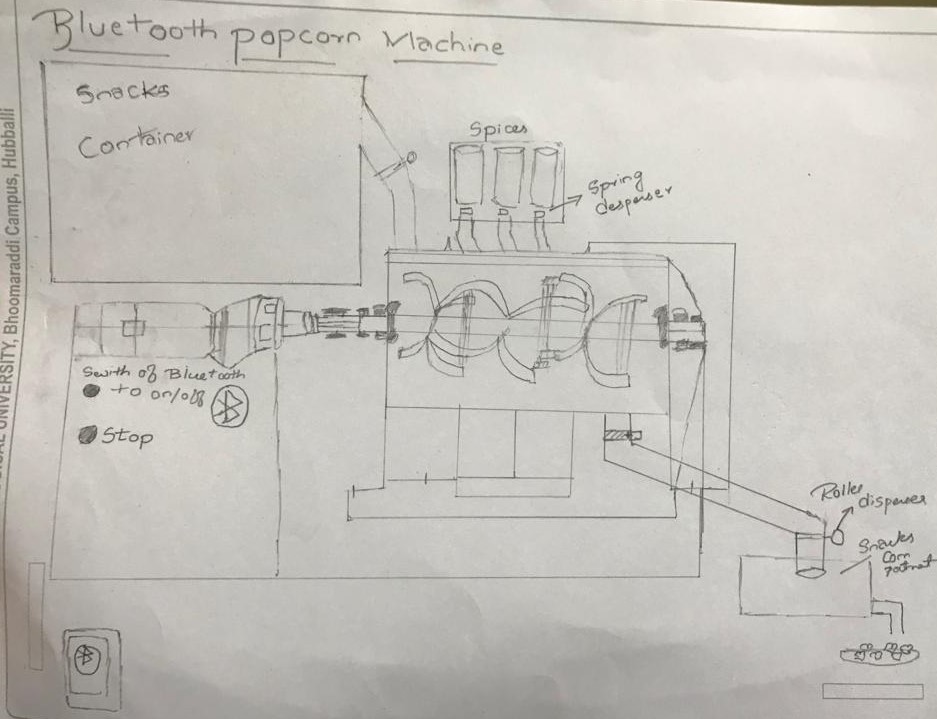 Bluetooth popcorn Machine
Snacks
Container
Spices
Spring
desperser
Swith of Bluetooth
to on/off
Stop
Roller
dispenser
Snacks
Com
UNIVERSITY, Bhoomaraddi Campus, Hubballi